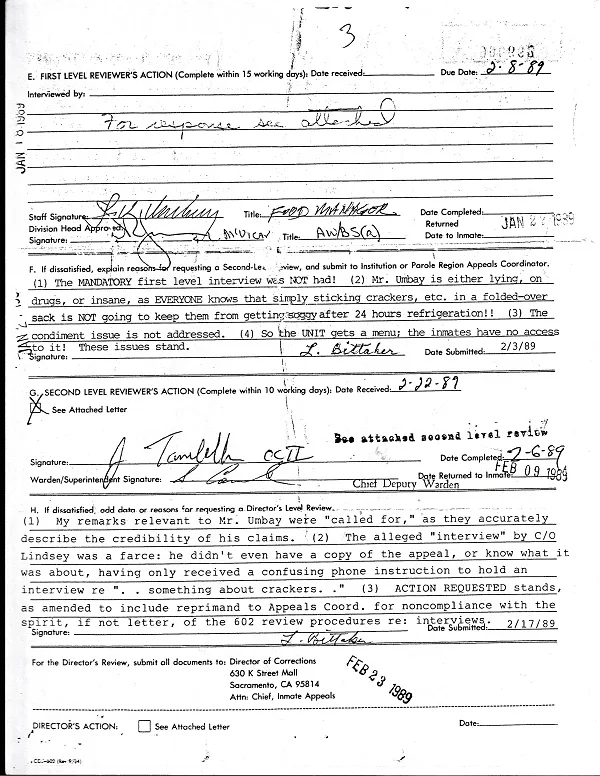 3
E. FIRST LEVEL REVIEWER'S ACTION (Complete within 15 working days): Date received: Due Date: 2-8-89
Interviewed by:
JAN 18 1989
For response see attached
Staff Signature: Title: FOOD MANAGER Date Completed:
Division Head Approved Returned JAN 27 1989
Signature: Title: AW/BS(A) Date to Inmate:
F. If dissatisfied, explain reasons for requesting a Second-Level Review, and submit to Institution or Parole Region Appeals Coordinator.
(1) The MANDATORY first level interview was NOT had! (2) Mr. Umbay is either lying, on
drugs, or insane, as EVERYONE knows that simply sticking crackers, etc. in a folded-over
sack is NOT going to keep them from getting soggy after 24 hours refrigeration!! (3) The
condiment issue is not addressed. (4) So the UNIT gets a menu; the inmates have no access
to it! These issues stand.
Signature: L. Bittaker Date Submitted: 2/3/89
G. SECOND LEVEL REVIEWER'S ACTION (Complete within 10 working days): Date Received: 2-22-89
See Attached Letter
See attached second level review
Signature: CCII Date Completed: 2-6-89
Warden/Superintendent Signature: Date Returned to Inmate: FEB 09 1989
Chief Deputy Warden
H. If dissatisfied, add data or reasons for requesting a Director's Level Review.
(1) My remarks relevant to Mr. Umbay were "called for," as they accurately
describe the credibility of his claims. (2) The alleged "interview" by C/O
Lindsey was a farce: he didn't even have a copy of the appeal, or know what it
was about, having only received a confusing phone instruction to hold an
interview re ". . something about crackers. ." (3) ACTION REQUESTED stands,
as amended to include reprimand to Appeals Coord. for noncompliance with the
spirit, if not letter, of the 602 review procedures re: interviews.
Signature: L. Bittaker Date Submitted: 2/17/89
For the Director's Review, submit all documents to: Director of Corrections
630 K Street Mall
Sacramento, CA 95814
Attn: Chief, Inmate Appeals
FEB 23 1989
DIRECTOR'S ACTION: See Attached Letter Date: